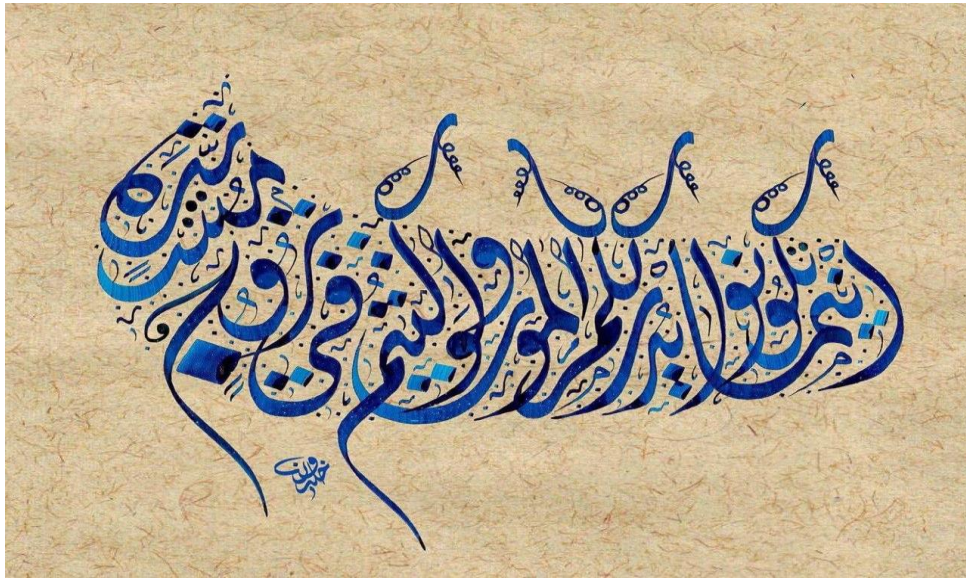 أينما تكونوا يدرككم الموت ولو كنتم في بروج مشيدة
خلدون